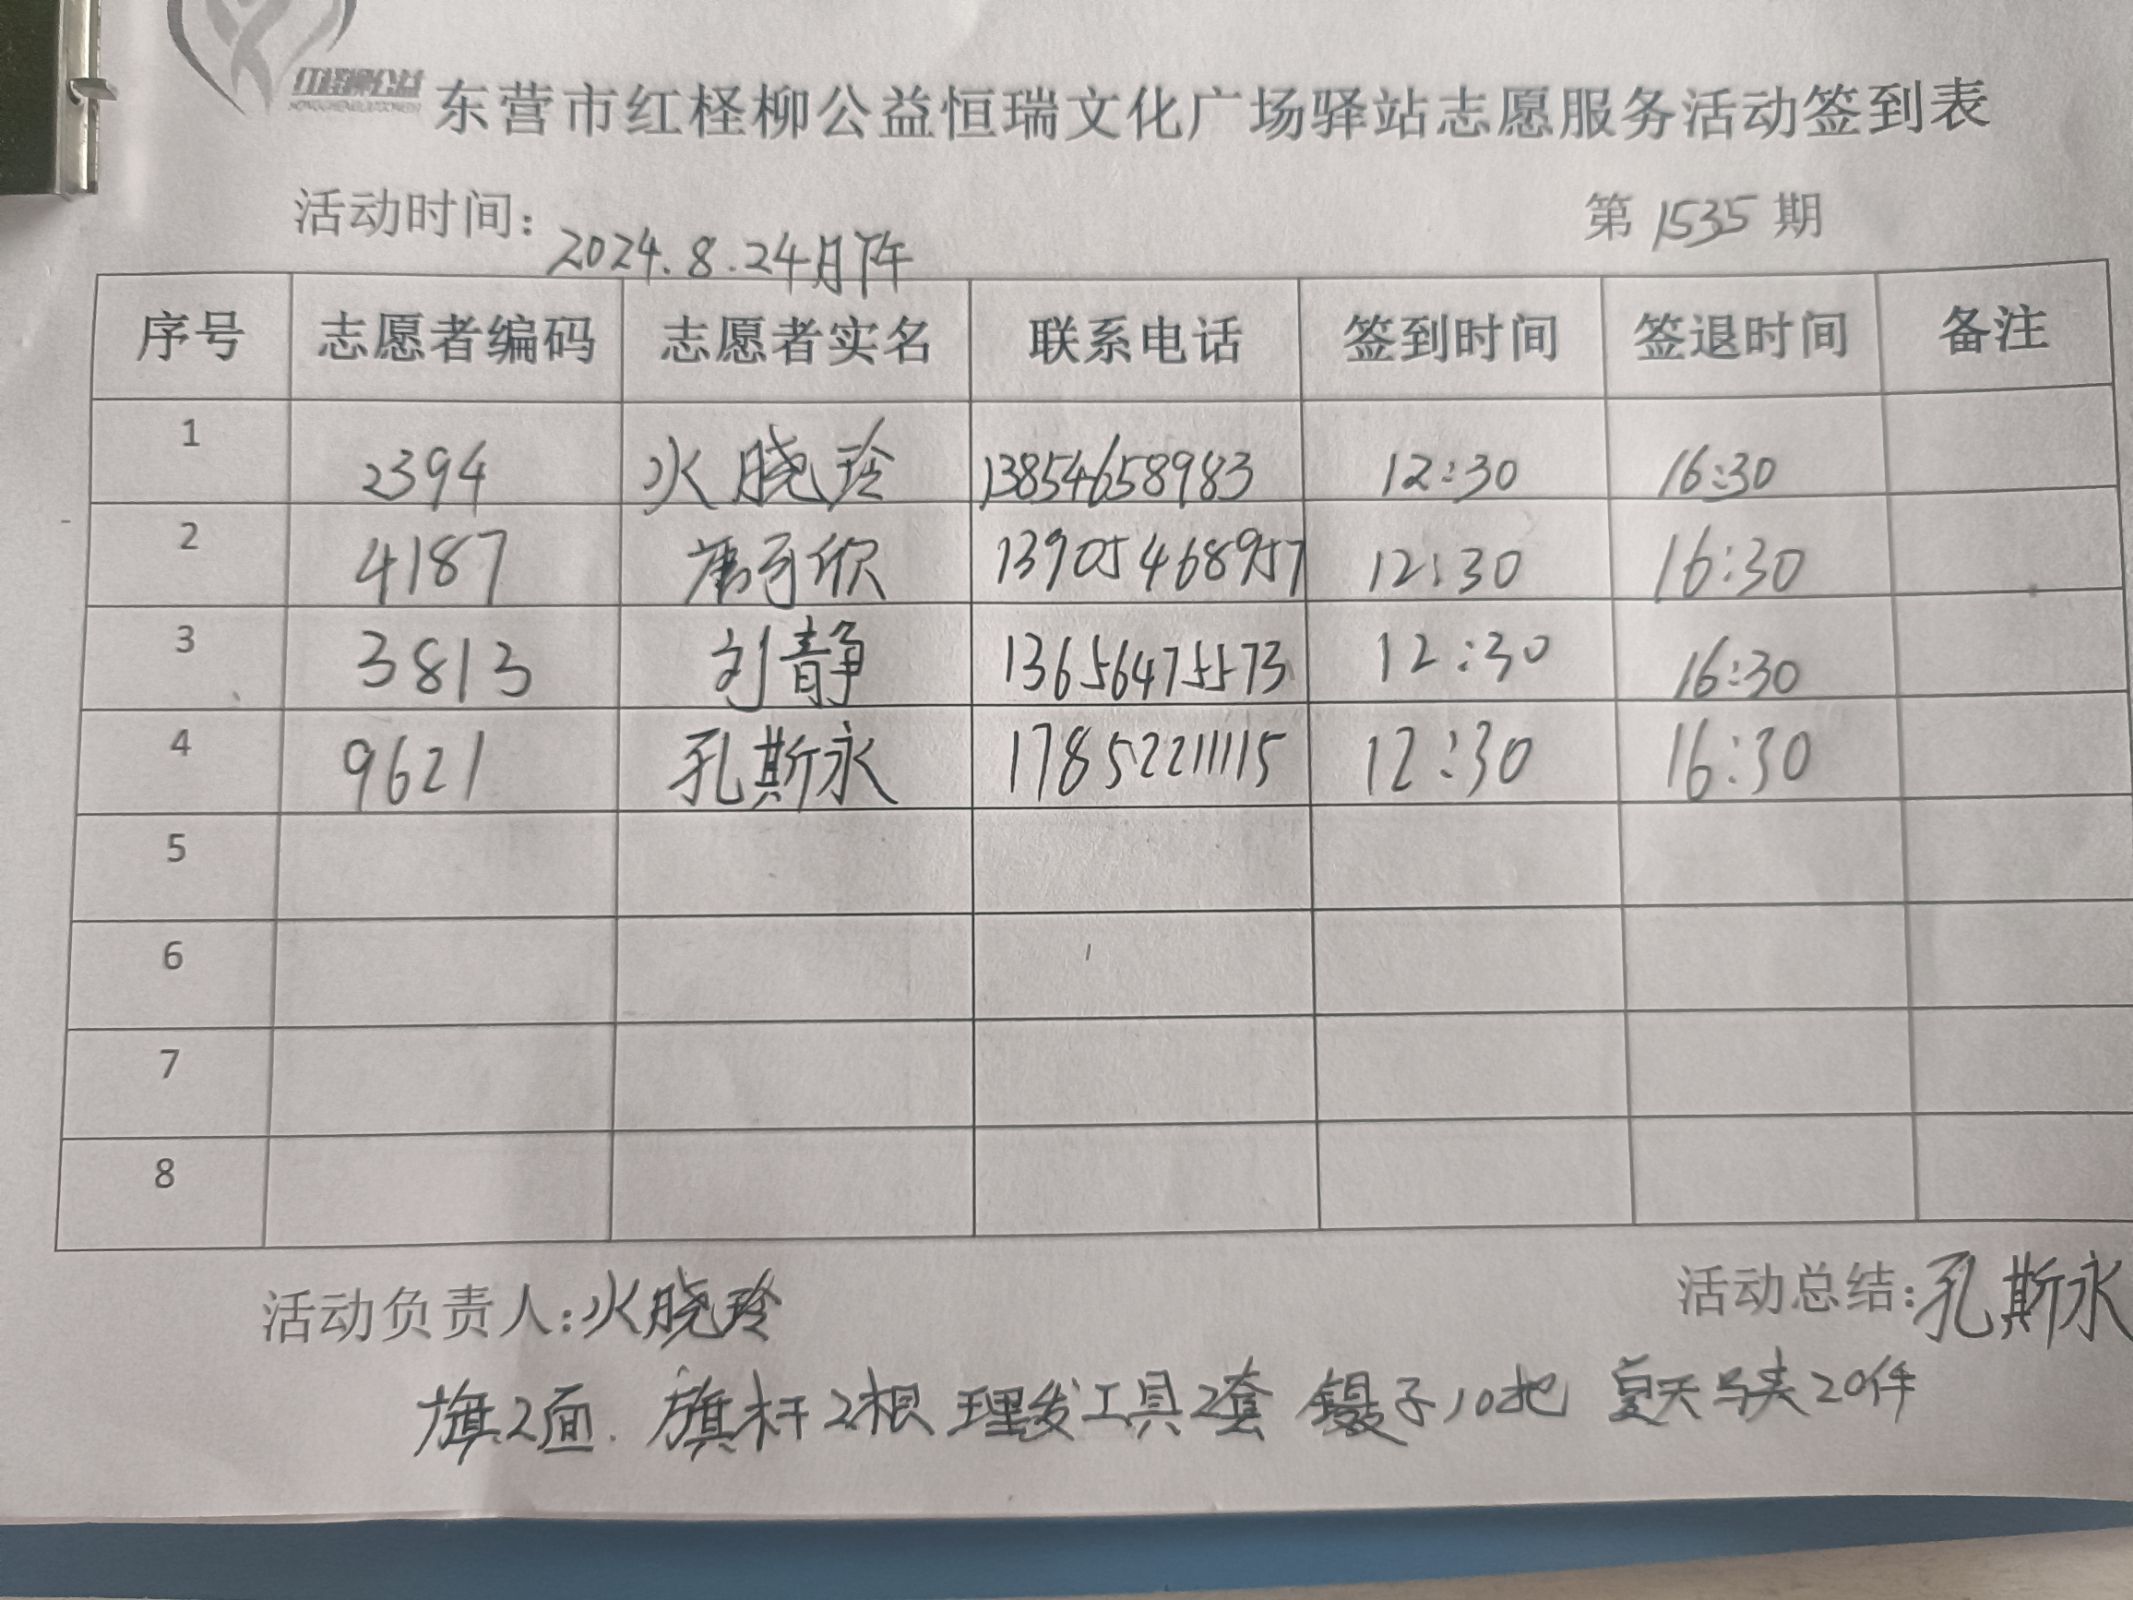 红柽柳公益
东营市红柽柳公益恒瑞文化广场驿站志愿服务活动签到表
活动时间：2024.8.24月下午 第1535期
序号 志愿者编码 志愿者实名 联系电话 签到时间 签退时间 备注
1 2394 火晓玲 13854658983 12:30 16:30
2 4187 唐可欣 13905468957 12:30 16:30
3 3813 刘静 13656475573 12:30 16:30
4 9621 孔斯永 17852211115 12:30 16:30
5
6
7
8
活动负责人：火晓玲 活动总结：孔斯永
旗2面. 旗杆2根 理发工具2套 镊子10把 夏天马夹20件